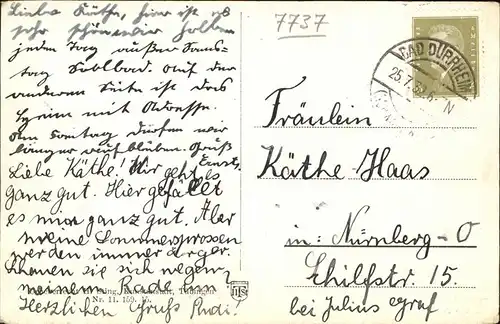 Liebe Käthe, hier ist es
sehr schön wir haben
jeden Tag außer Sams-
tag Solbad. Auf der
anderen Seite ist das
Heim mit Adresse.
Am Sonntag dürfen wir
länger aufbleiben. Gruß
Ernst.
Liebe Käthe! Mir geht es
ganz gut. Hier gefällt
es mir ganz gut. Aber
meine Sommersprossen
werden immer ärger.
sie sich wegen
meinem
Herzlichen Gruß Rudi!
Nr. 11. 159.
7737
BAD DÜRRHEIM
25.7.32.
Fräulein
Käthe Haas
in: Nürnberg-O
Schilfstr. 15.
bei Julius Graf